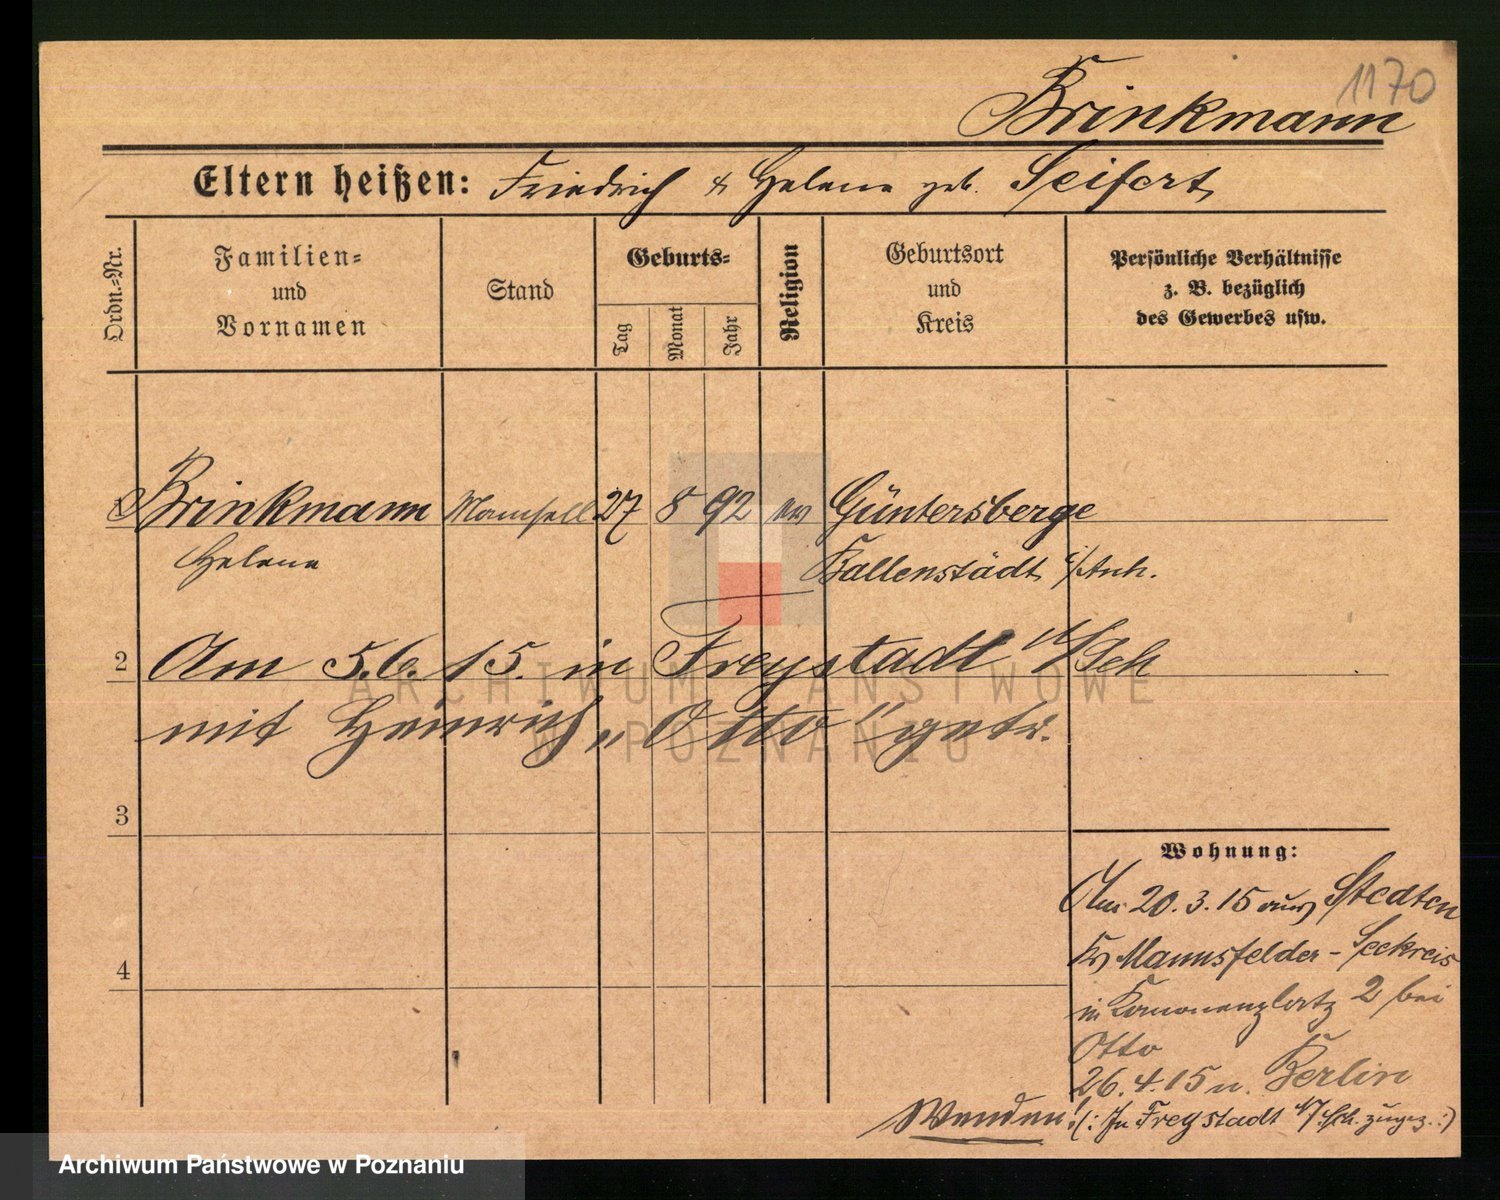 1170
Brinkmann
Eltern heißen: Friedrich & Helene geb. Seifert
Ordn.-Nr.
Familien-
und
Vornamen
Stand
Geburts-
Tag
Monat
Jahr
Religion
Geburtsort
und
Kreis
Persönliche Verhältnisse
z. B. bezüglich
des Gewerbes usw.
Brinkmann Mamsell 27 8 92 ev Güntersberge
Helene Ballenstädt i/Anh.
2 Am 5.6.15. in Freystadt N/Sch
mit Heinrich „Otto" getr.
3
4
Wohnung:
Am 20.3.15 aus Stedten
Kr Mannsfelder-Seekreis
in Kanonenplatz 2 bei
Otto
26.4.15 n. Berlin
Wenden! (: In Freystadt N/Sch. zugez. :)
ARCHIWUM PAŃSTWOWE
W POZNANIU
Archiwum Państwowe w Poznaniu